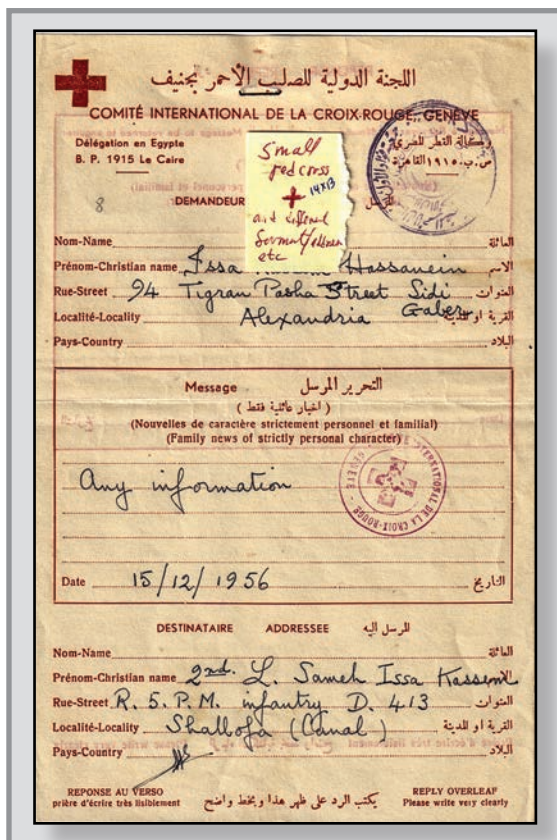 اللجنة الدولية للصليب الأحمر بجنيف
COMITÉ INTERNATIONAL DE LA CROIX-ROUGE, GENÈVE
Délégation en Egypte
B. P. 1915 Le Caire
وكالة القطر المصري
ص.ب. ١٩١٥ القاهرة
Small
red cross
+ 14X13
and different
etc
8
DEMANDEUR
المرسل
Nom-Name العائلة
Prénom-Christian name Issa Hassanein الاسم
Rue-Street 94 Tigran Pasha Street Sidi العنوان
Localité-Locality Alexandria Gaber القرية او المدينة
Pays-Country البلاد
Message التحرير المرسل
( اخبار عائلية فقط )
(Nouvelles de caractère strictement personnel et familial)
(Family news of strictly personal character)
Any information
INTERNATIONAL DE LA CROIX-ROUGE
Date 15/12/1956 التاريخ
DESTINATAIRE ADDRESSEE المرسل اليه
Nom-Name العائلة
Prénom-Christian name 2nd. L. Sameh Issa Kassem الاسم
Rue-Street R. 5. P. M. infantry D. 413 العنوان
Localité-Locality Shallofa (Canal) القرية او المدينة
Pays-Country البلاد
REPONSE AU VERSO
prière d'écrire très lisiblement
يكتب الرد على ظهر هذا وبخط واضح
REPLY OVERLEAF
Please write very clearly